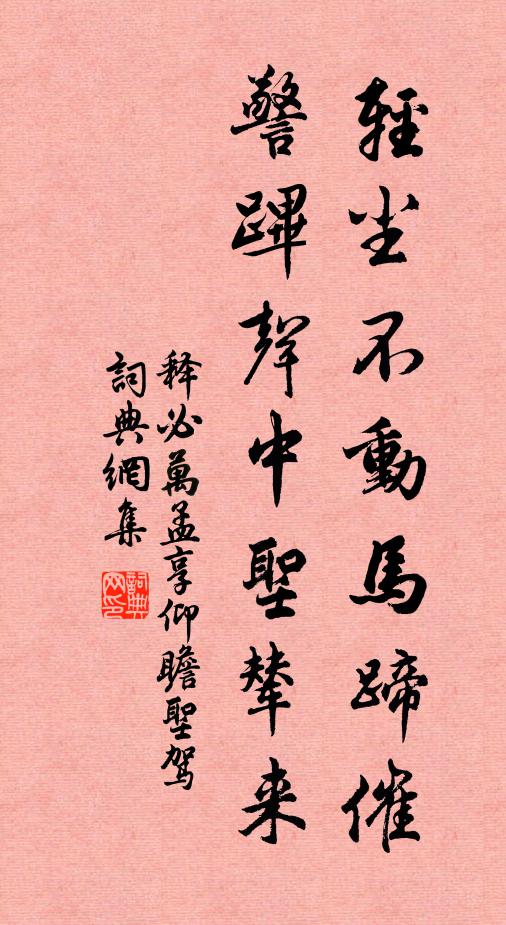 輕尘不動馬蹄催
警蹕聲中聖輦来
释必萬孟享仰瞻聖驾
詞典網集
詞典网印